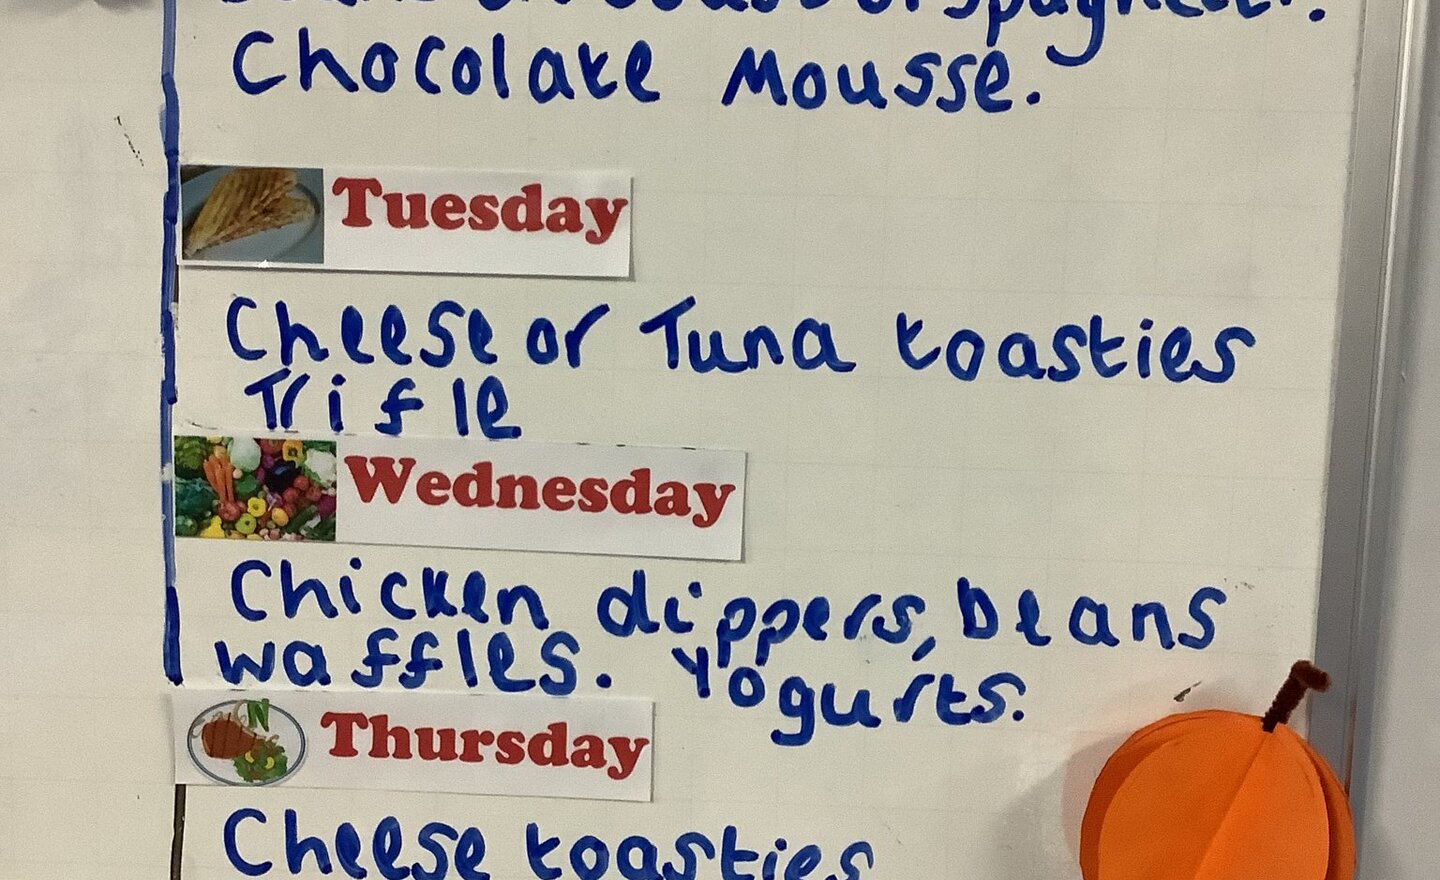 or spaghetti.
Chocolate Mousse.
Tuesday
Cheese or Tuna toasties
Trifle
Wednesday
Chicken dippers, beans
waffles. Yogurts.
Thursday
Cheese toasties